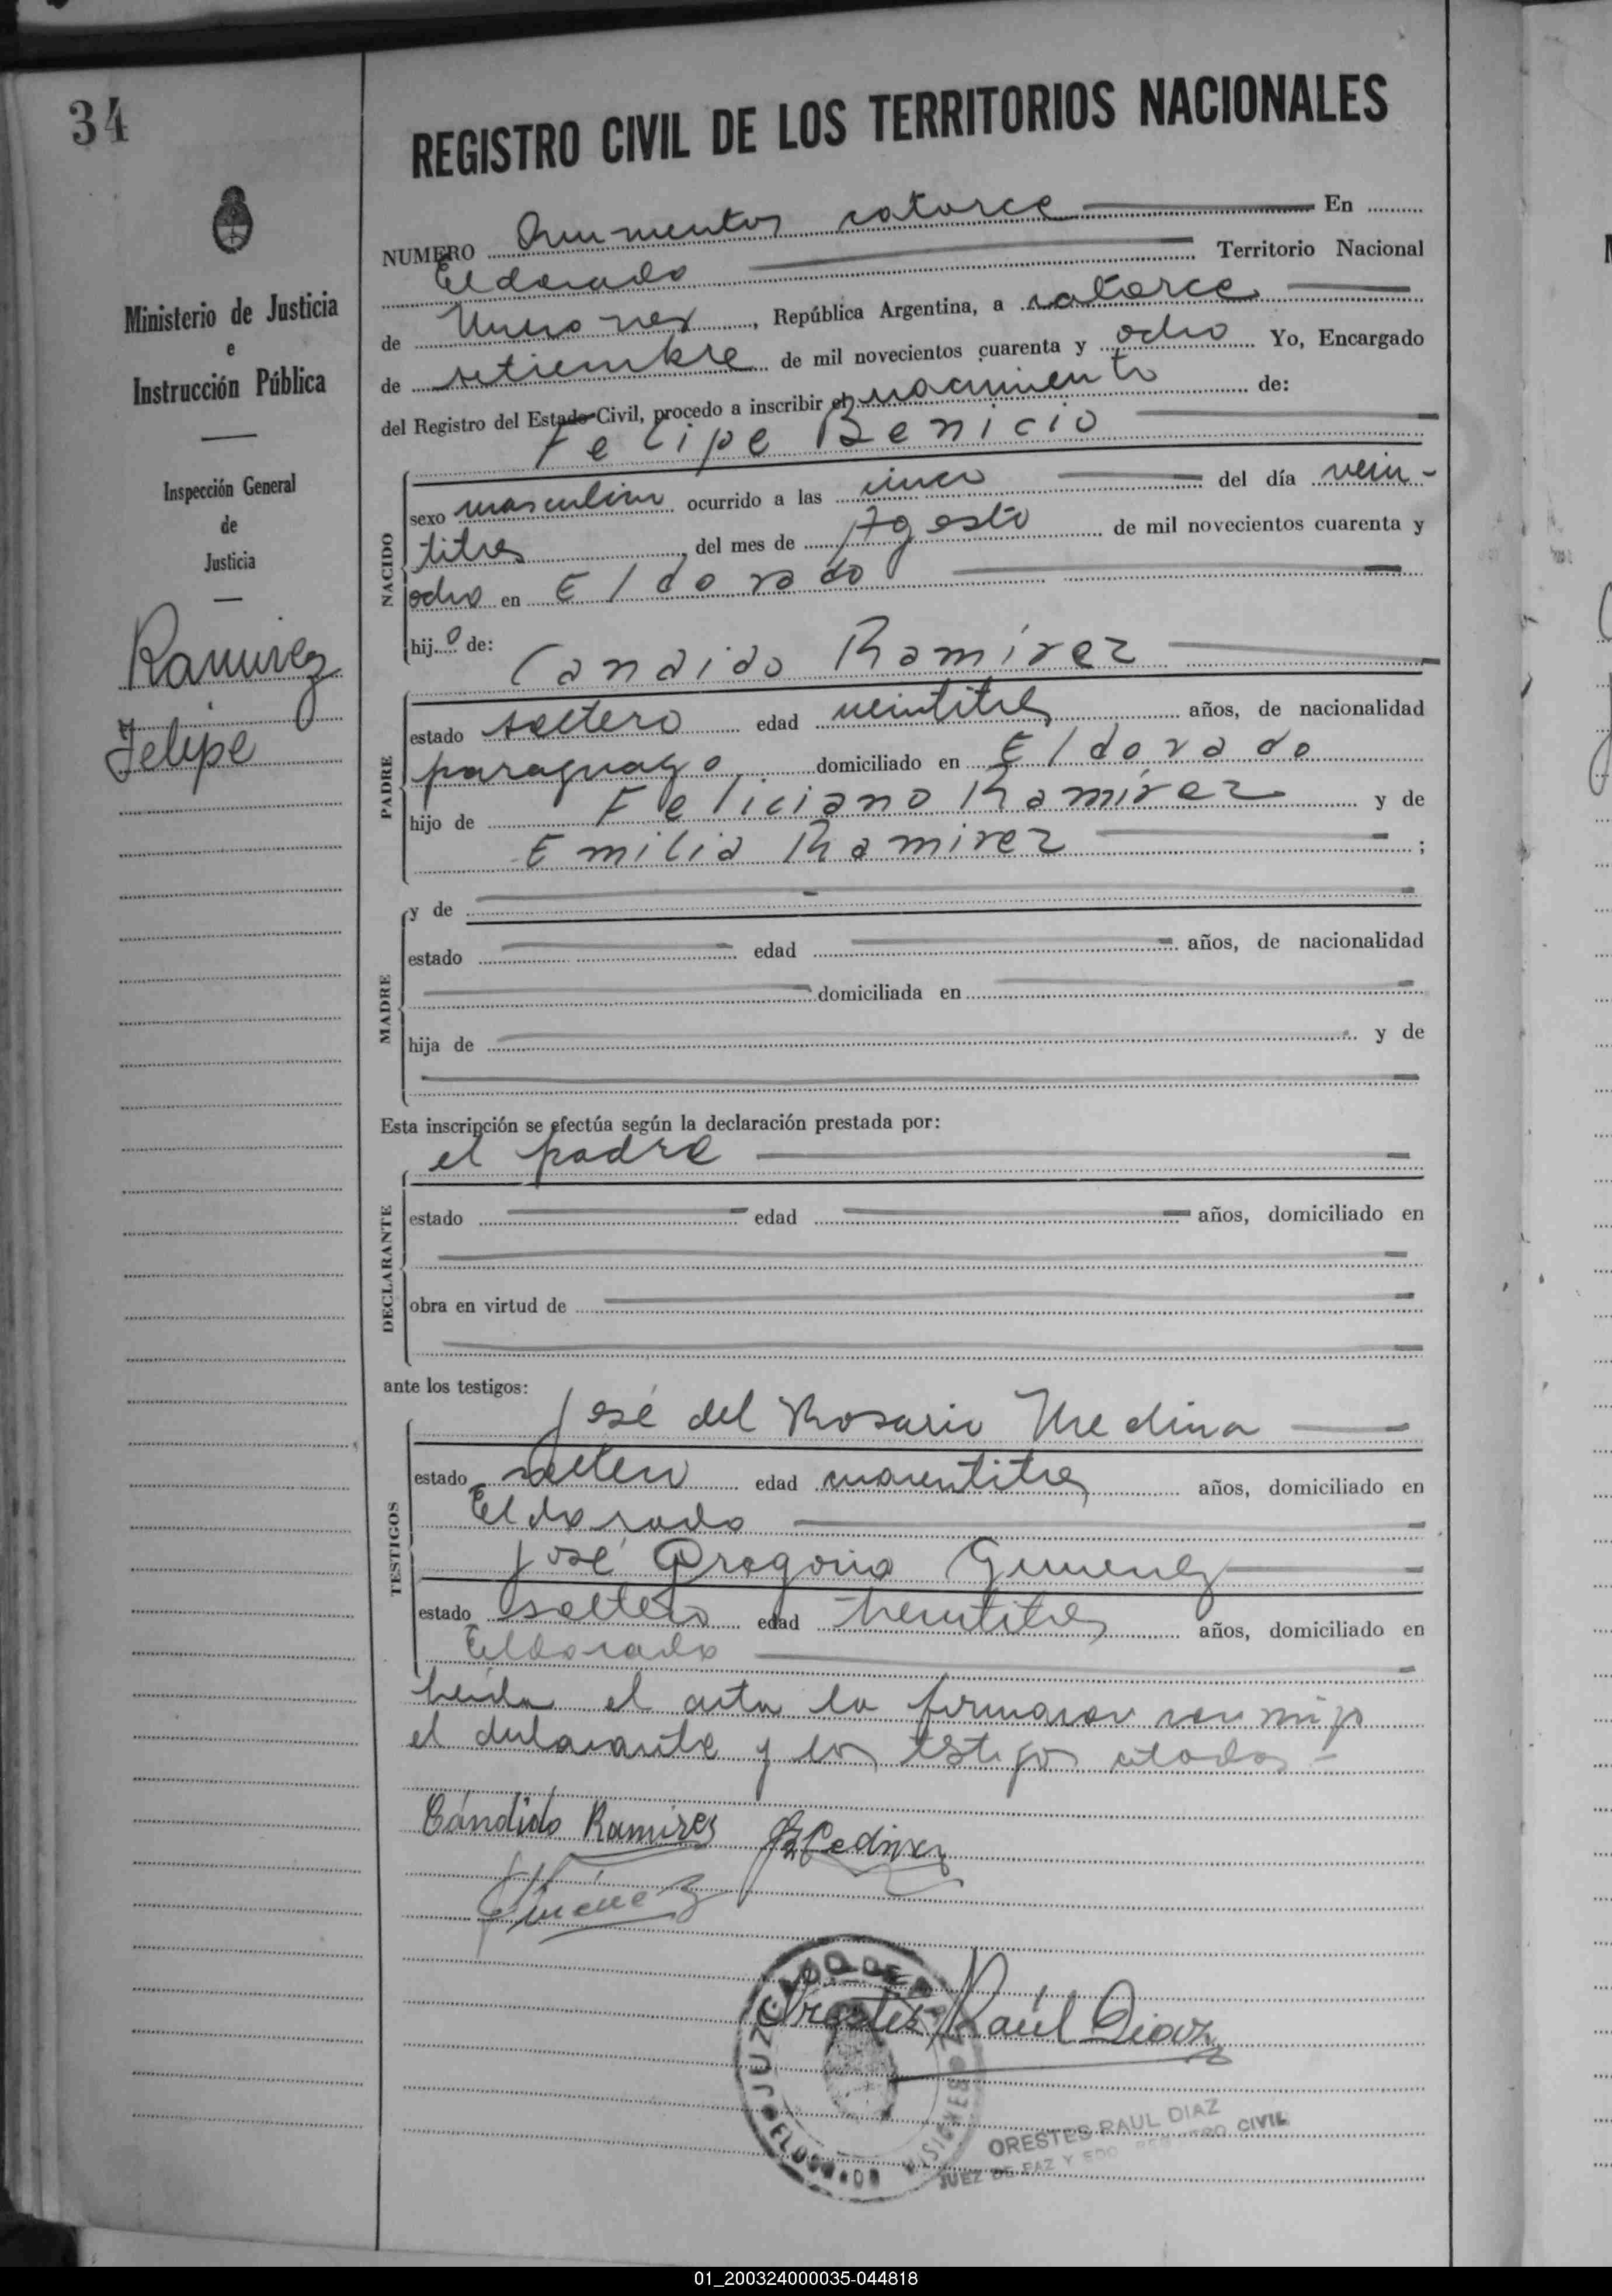 34
Ministerio de Justicia
e
Instrucción Pública
Inspección General
de
Justicia
Ramirez
Felipe
REGISTRO CIVIL DE LOS TERRITORIOS NACIONALES
NUMERO Quinientos catorce En
Eldorado Territorio Nacional
de Misiones, República Argentina, a catorce
de setiembre de mil novecientos cuarenta y ocho Yo, Encargado
del Registro del Estado Civil, procedo a inscribir el nacimiento de:
Felipe Benicio
NACIDO
sexo masculino ocurrido a las cinco del día vein-
titres, del mes de Agosto de mil novecientos cuarenta y
ocho en Eldorado
hijo de:
Candido Ramírez
PADRE
estado soltero edad veintitres años, de nacionalidad
paraguayo domiciliado en Eldorado
hijo de Feliciano Ramírez y de
Emilia Ramirez ;
MADRE
y de
estado edad años, de nacionalidad
domiciliada en
hija de y de
Esta inscripción se efectúa según la declaración prestada por:
el padre
DECLARANTE
estado edad años, domiciliado en
obra en virtud de
ante los testigos:
TESTIGOS
José del Rosario Medina
estado soltero edad cuarentitres años, domiciliado en
Eldorado
José Gregorio Gimenez
estado soltero edad treintitres años, domiciliado en
Eldorado
Leída el acta la firmaron conmigo
el declarante y los testigos citados -
Cándido Ramires
Jimenez
Orestes Raúl Diaz
JUZGADO DE PAZ
ELDORADO MISIONES
ORESTES RAUL DIAZ
JUEZ DE PAZ Y EDO. REGISTRO CIVIL
01_200324000035-044818